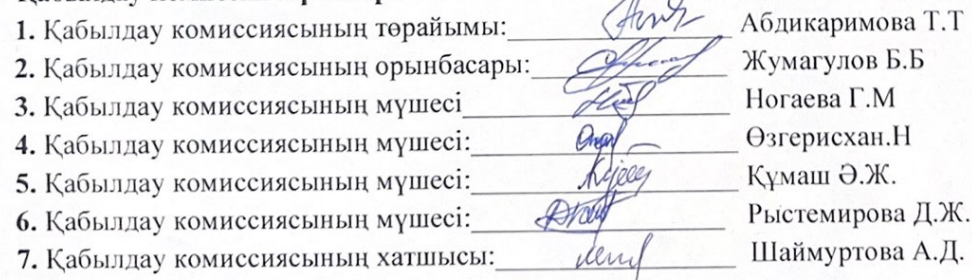 1. Қабылдау комиссиясының төрайымы: Абдикаримова Т.Т
2. Қабылдау комиссиясының орынбасары: Жумагулов Б.Б
3. Қабылдау комиссиясының мүшесі Ногаева Г.М
4. Қабылдау комиссиясының мүшесі: Өзгерисхан.Н
5. Қабылдау комиссиясының мүшесі: Құмаш Ә.Ж.
6. Қабылдау комиссиясының мүшесі: Рыстемирова Д.Ж.
7. Қабылдау комиссиясының хатшысы: Шаймуртова А.Д.